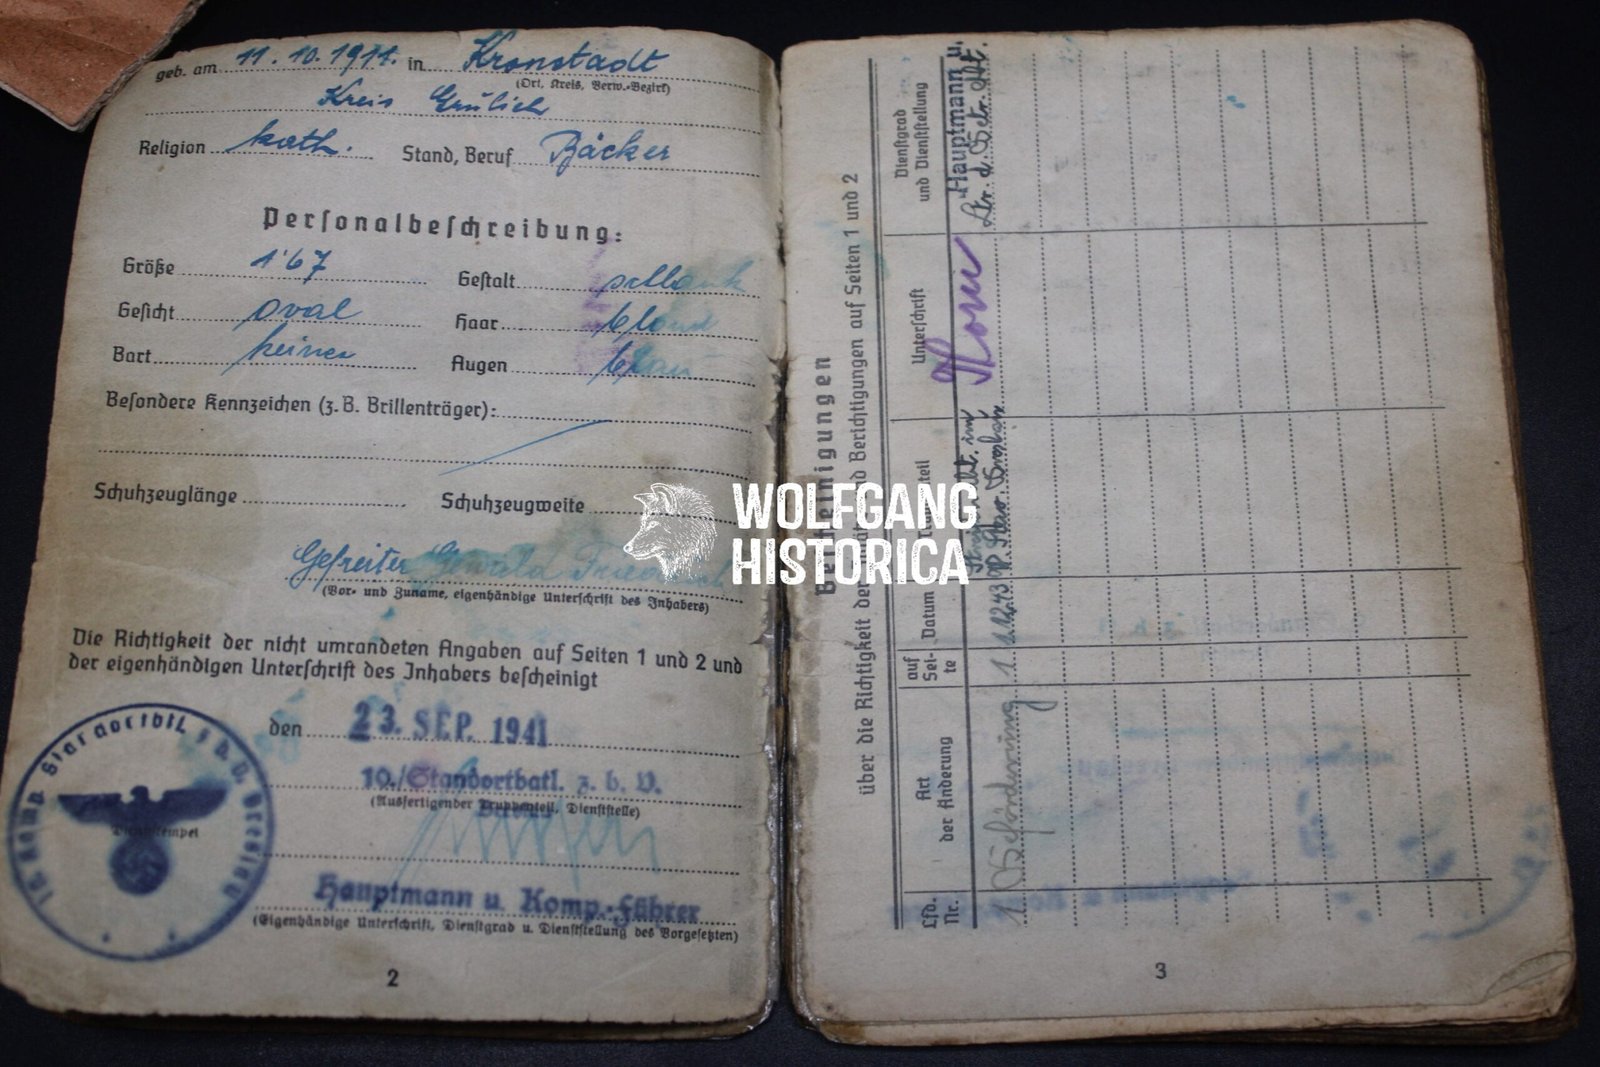 geb. am 11.10.1911. in Kronstadt
(Ort, Kreis, Verw.-Bezirk)
Kreis Grulich
Religion kath. Stand, Beruf Bäcker
Personalbeschreibung:
Größe 1'67 Gestalt schlank
Gesicht oval Haar blond
Bart keinen Augen blau
Besondere Kennzeichen (z.B. Brillenträger):
Schuhzeuglänge Schuhzeugweite
Gefreiter Friedrich
(Vor- und Zuname, eigenhändige Unterschrift des Inhabers)
Die Richtigkeit der nicht umrandeten Angaben auf Seiten 1 und 2 und
der eigenhändigen Unterschrift des Inhabers bescheinigt
den 23. SEP. 1941
10./Standortbatl. z. b. V.
(Ausfertigender Truppenteil, Dienststelle)
Breslau
Hauptmann u. Komp.-Führer
(Eigenhändige Unterschrift, Dienstgrad u. Dienststellung des Vorgesetzten)
Komp. Standortbtl. z. b. V. Breslau
Dienststempel
2
WOLFGANG
HISTORICA
Bescheinigungen
über die Richtigkeit der und Berichtigungen auf Seiten 1 und 2
Lfd. Nr.
Art der Änderung
auf Seite
Datum
Unterschrift
Dienstgrad und Dienststellung
1 Beförderung 1 1.12.43
Hauptmann u.
3